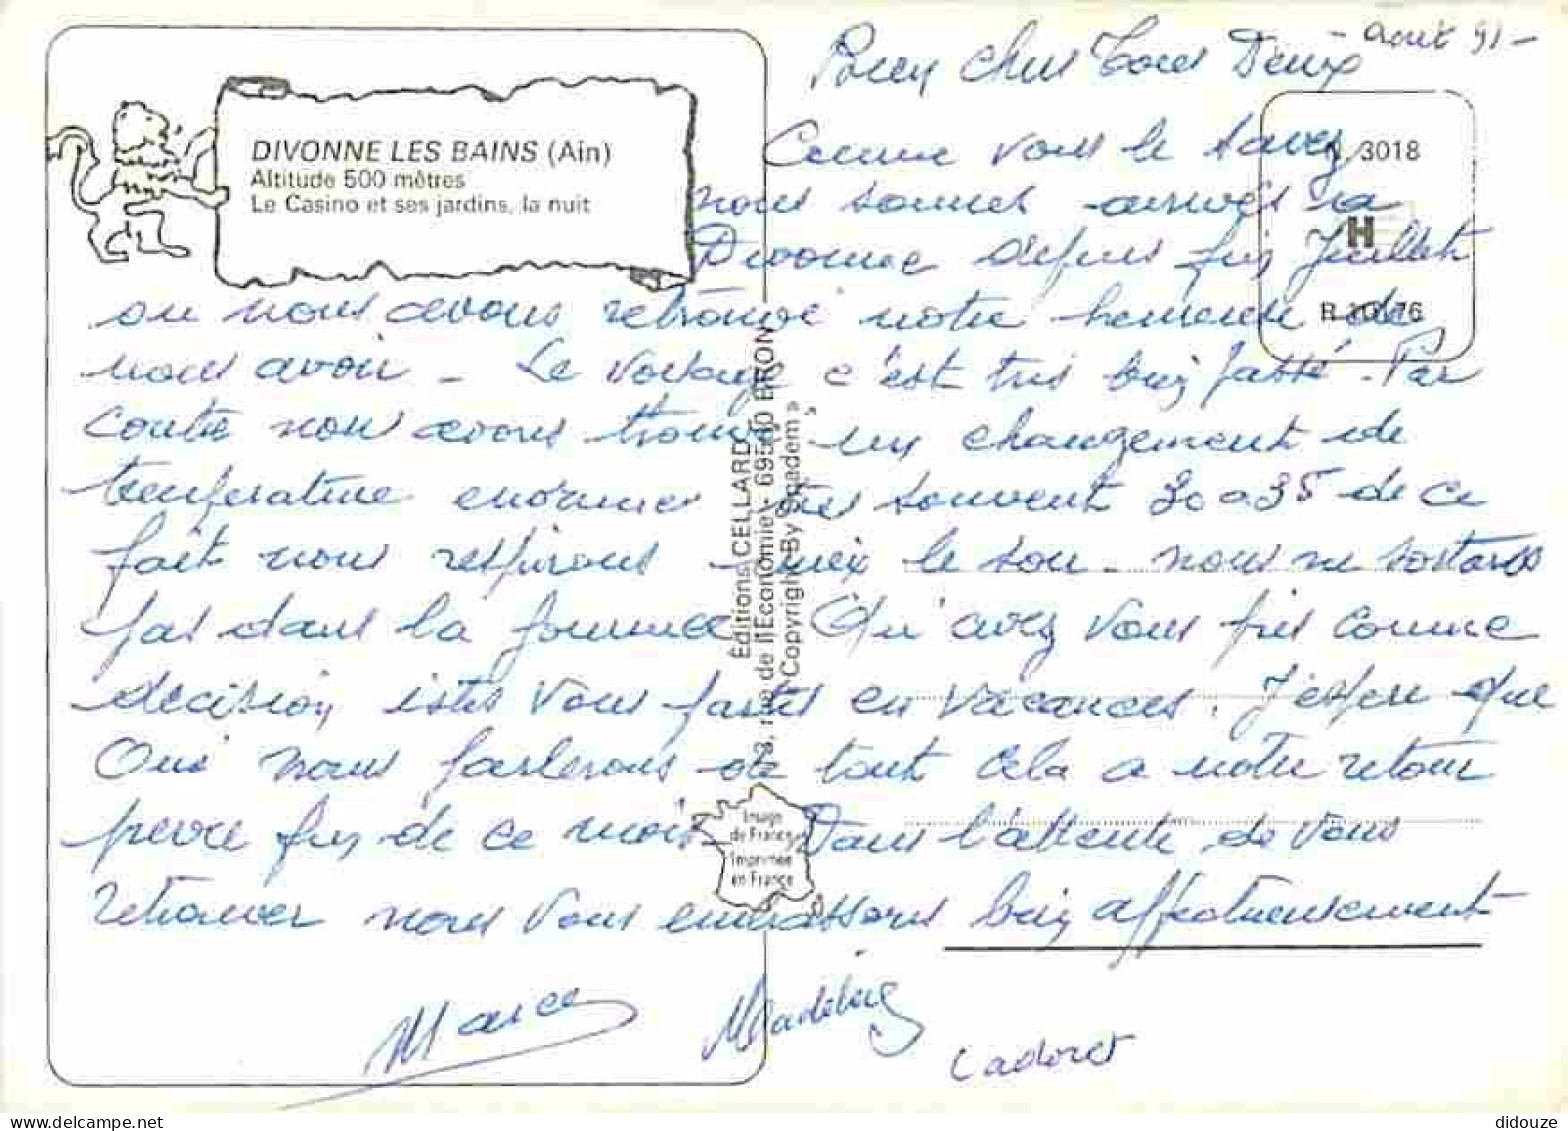 - Aout 91 -
Bien Chers Tous Deux
DIVONNE LES BAINS (Ain)
Altitude 500 mètres
Le Casino et ses jardins, la nuit
3018
H
R 10176
Comme vous le savez
nous sommes arrivés a
Divonne depuis fin Juillet
ou nous avons retrouvé notre de
nous avoir - Le voyage c'est très bien passé. Par
contre nous avons trouvé un changement de
température enorme très souvent 30 a 35 de ce
fait nous respirons mieux le soir. nous ne sortons
pas dans la journée Qu'avez vous pris comme
décision etes vous partis en vacances. J'espère que
Oui nous parlerons de tout cela a notre retour
prevu fin de ce mois. Dans l'attente de vous
retrouver nous vous embrassons bien affectueusement
Madeleine
Cadoret
Éditions CELLARD
, rue de l'Economie - 69500 BRON
« Copyright By »
Image
de France
Imprimée
en France
didouze